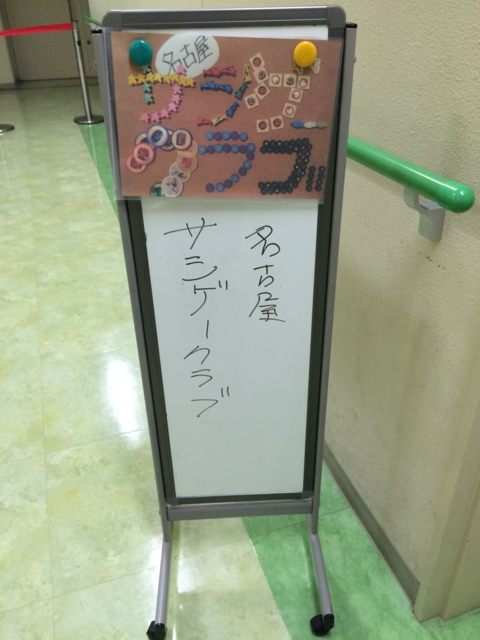 名古屋
サシゲー
クラブ
名古屋
サシゲークラブ